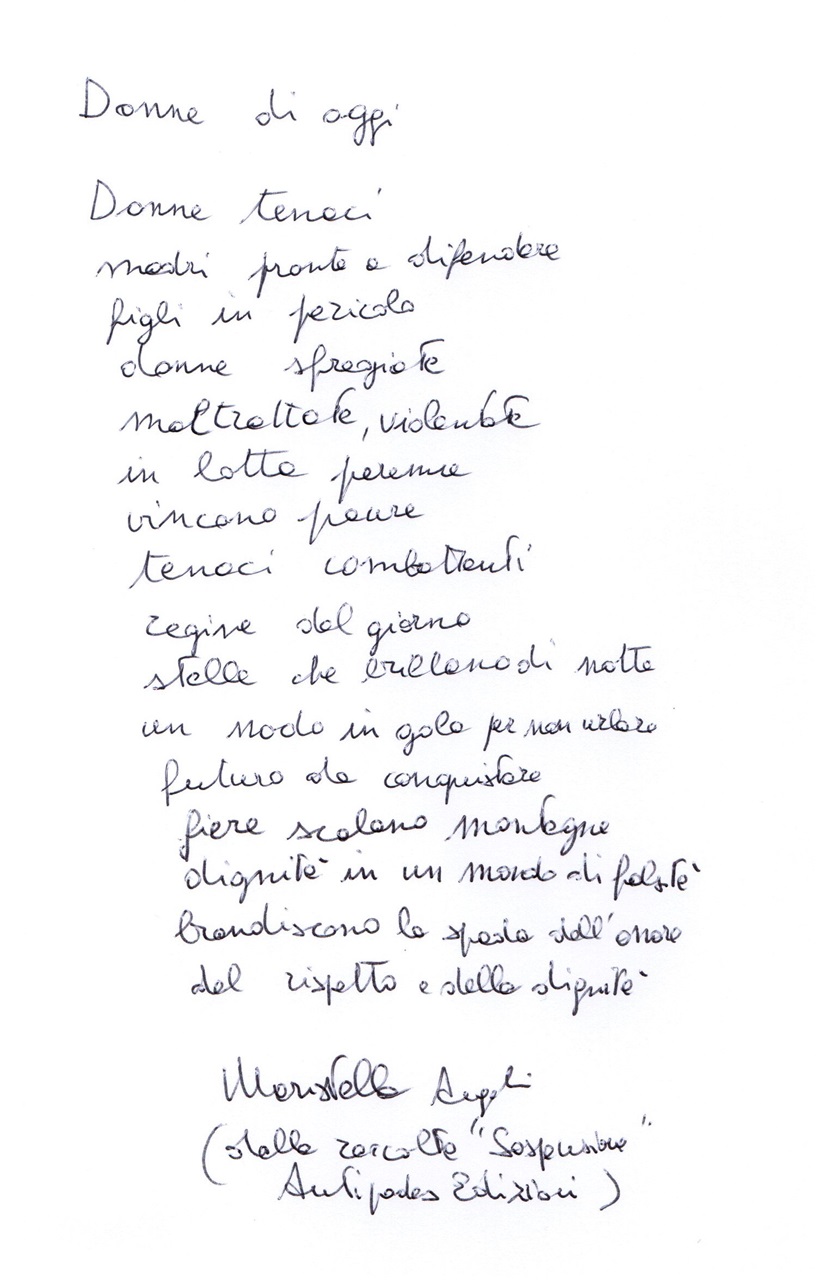 Donne di oggi
Donne tenaci
madri pronte a difendere
figli in pericolo
donne sfregiate
maltrattate, violentate
in lotta perenne
vincono paure
tenaci combattenti
regine del giorno
stelle che brillano di notte
un nodo in gola per non urlare
futuro da conquistare
fiere scalano montagne
dignità in un mondo di falsità
brandiscono la spada dell'onore
del rispetto e della dignità
Maristella Angeli
(dalla raccolta "Sospensione"
Antipodes Edizioni)